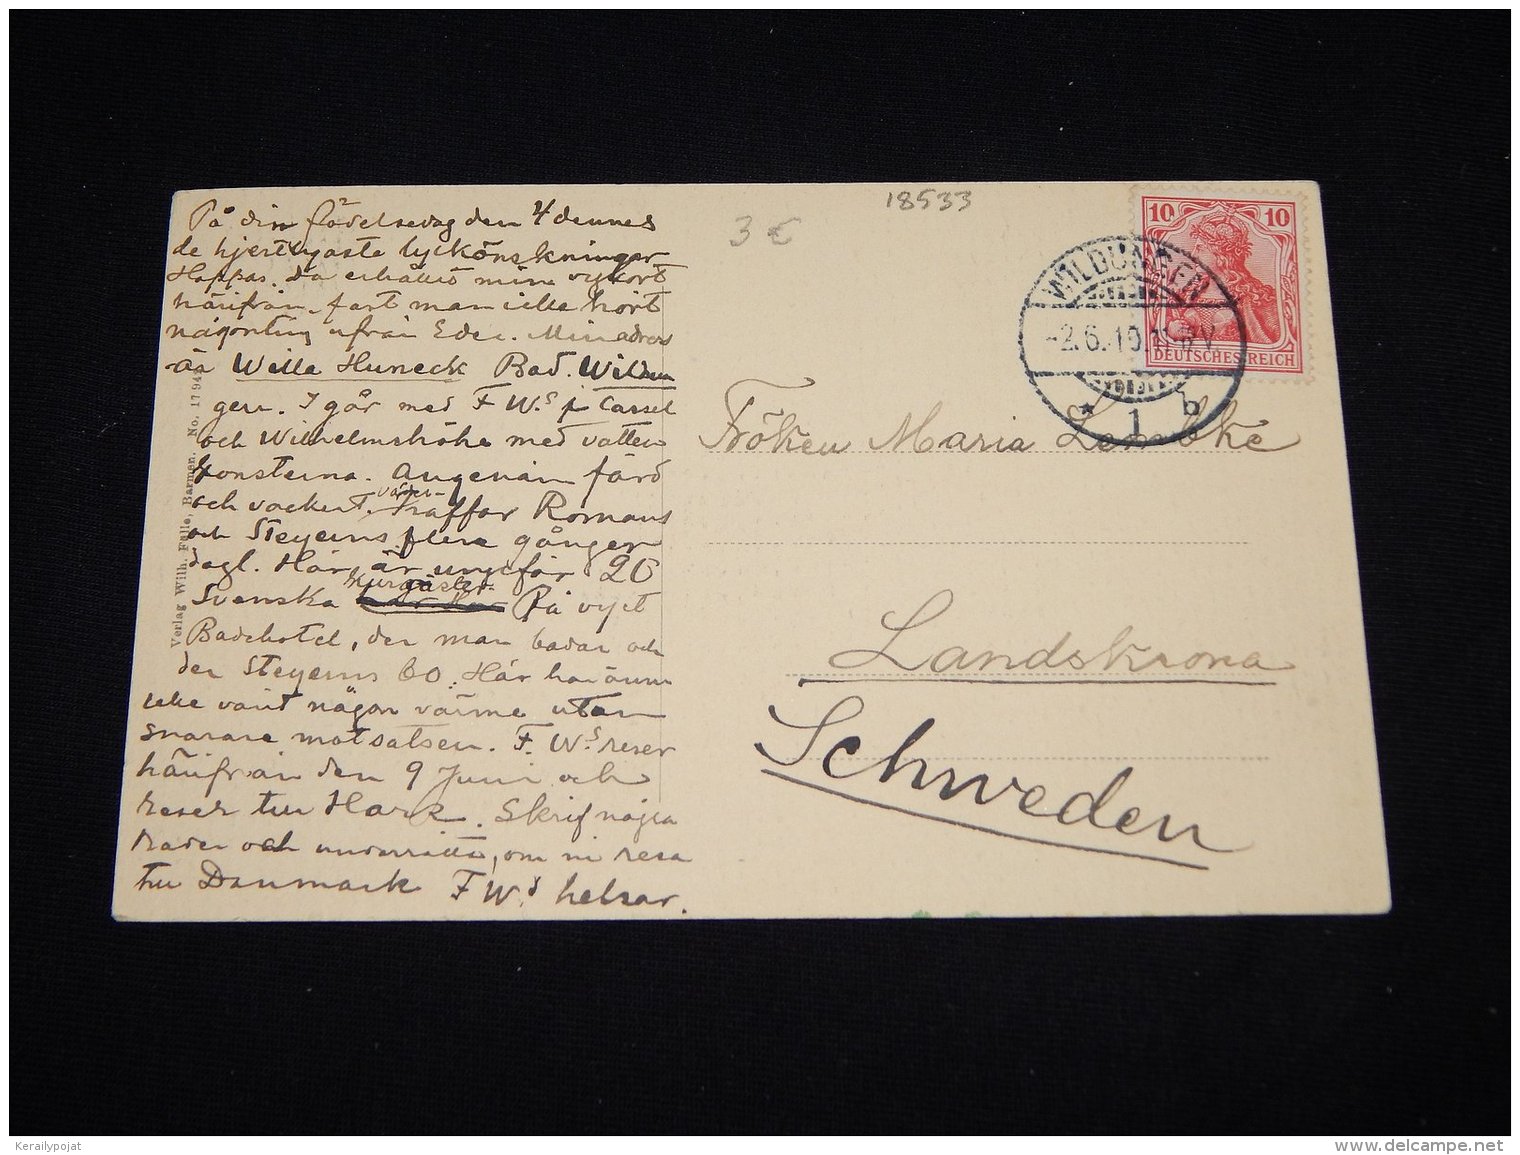 18533
3 €
10 10
DEUTSCHES REICH
WILDUNGEN
-2.6.10. 11-12V.
* 1 b
På din födelsedag den 4 dennes
de hjertligaste lyckönskningar
Hoppas. Da erhållit min vykort
härifrån, fast man icke hört
någonting ifrån Eder. Min adress
är Villa Huneck Bad. Wildun
gen. I går med F W.s i Cassel
och Wilhelmshöhe med vatten
konsterna. Angenäm färd
och vackert väder. Träffar Romans
och Steyerns flere gånger
dagl. Här är ungefär 20
Svenska kurgäster. På nytt
Badehotel, der man badar och
der Steyerns bo. Här har ännu
icke varit någon värme utan
snarare motsatsen. F. W.s reser
härifrån den 9 Juni och
reser till Harz. Skrif några
rader och underrätta, om ni resa
till Danmark F W.s helsar.
Verlag Wilh. Fülle, Barmen. No. 1794
Fröken Maria Lembke
Landskrona
Schweden
Kerailypojat
www.delcampe.net